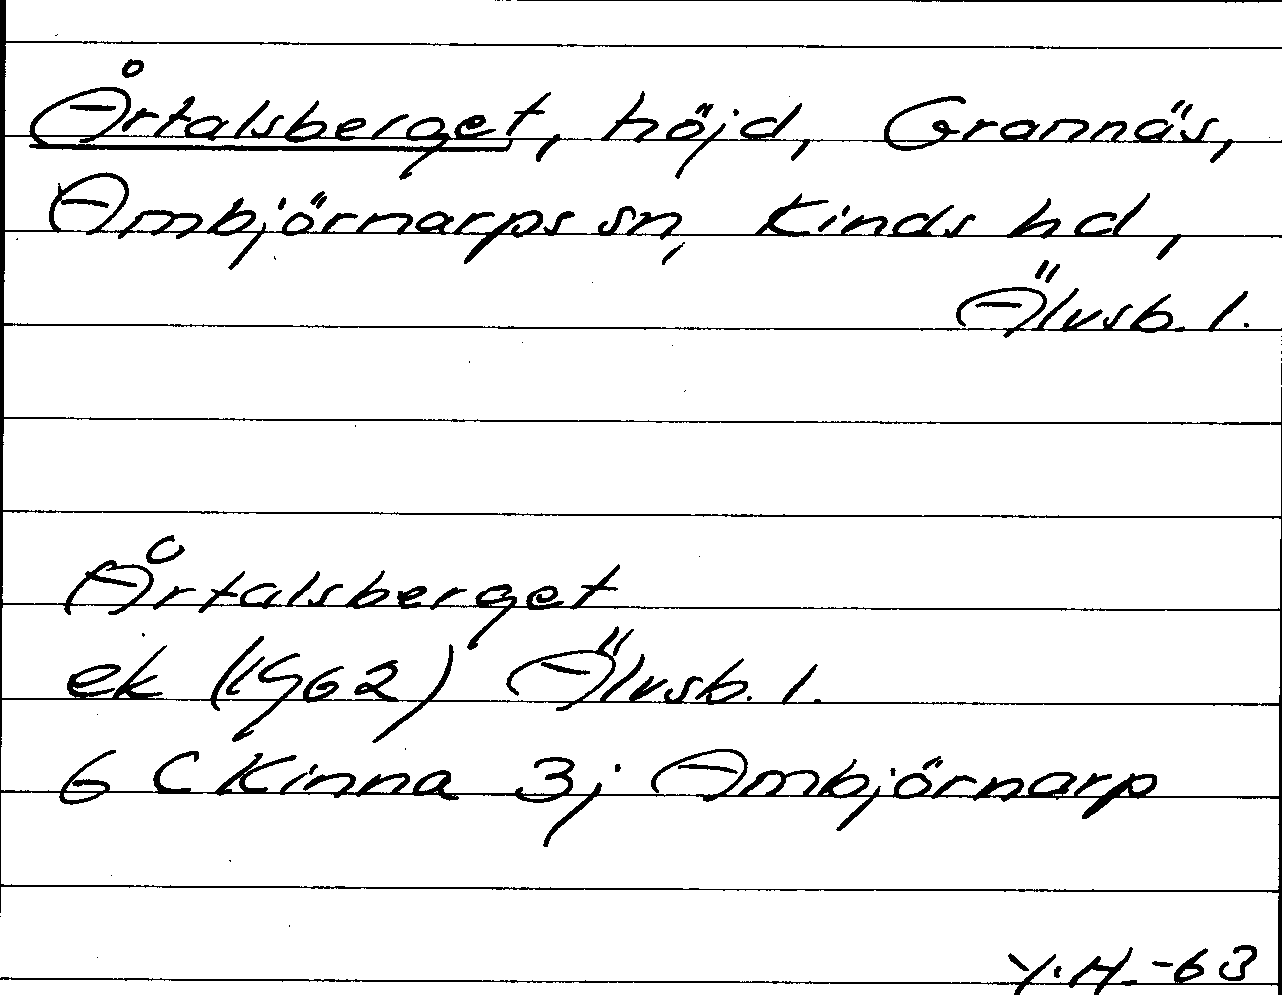 Årtalsberget, höjd, Grannäs,
Ambjörnarps sn, Kinds hd,
Älvsb. l.
Årtalsberget
ek (1962) Älvsb. l.
6 C Kinna 3j Ambjörnarp
Y.H. -63